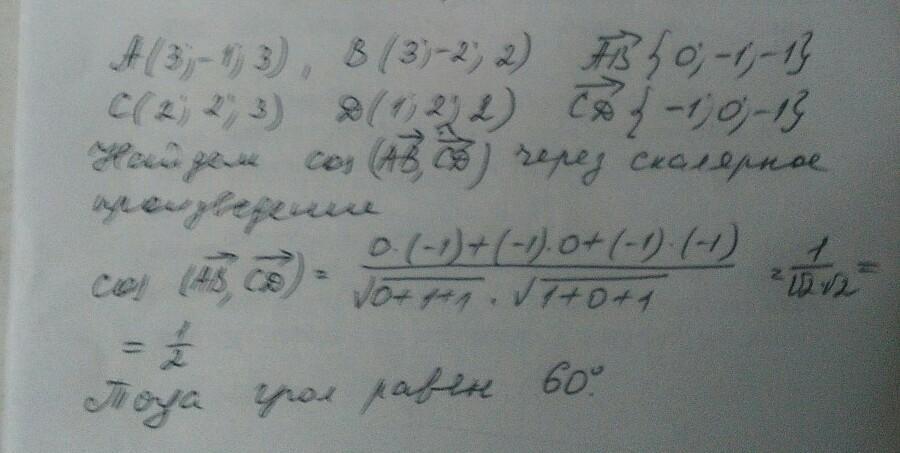 A(3; -1; 3), B(3; -2; 2) AB{0; -1; -1}
C(2; 2; 3) D(1; 2; 2) CD{-1; 0; -1}
Найдем cos(AB, CD) через скалярное
произведение
cos (AB, CD) = (0·(-1)+(-1)·0+(-1)·(-1))/(√(0+1+1) · √(1+0+1)) = 1/(√2·√2) =
= 1/2
Тогда угол равен 60°.